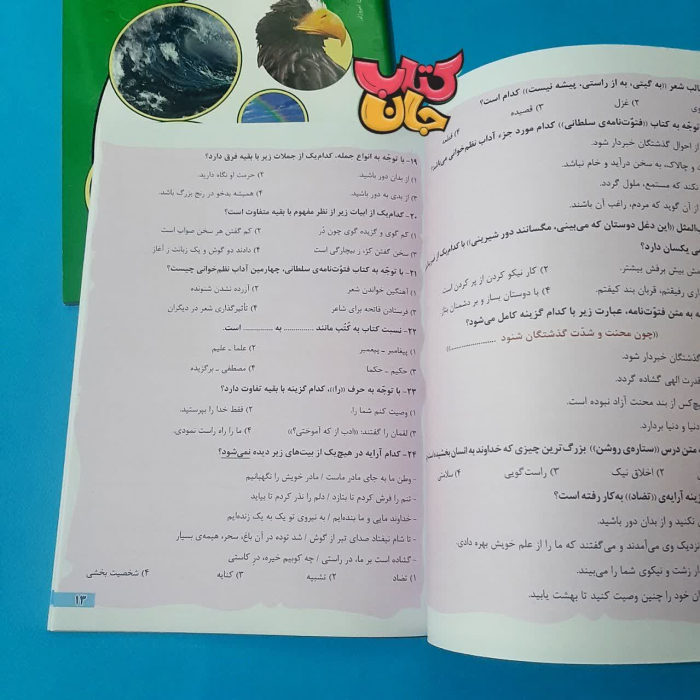 کتاب
جان
۱۹- با توجّه به انواع جمله، کدام‌یک از جملات زیر با بقیه فرق دارد؟
۱) از بدان دور باشید.
۲) حرمت او نگاه دارید.
۳) از بدی به دور باشید.
۴) همیشه بدخو در رنج بزرگ باشد.
۲۰- کدام‌یک از ابیات زیر از نظر مفهوم با بقیه متفاوت است؟
۱) کم گوی و گزیده گوی چون دُر
۲) کم گفتن هر سخن صواب است
۳) سخن گفتن کژ، ز بیچارگی است
۴) دادند دو گوش و یک زبانت ز آغاز
۲۱- با توجّه به کتاب فتوّت‌نامه‌ی سلطانی، چهارمین آداب نظم‌خوانی چیست؟
۱) آهنگین خواندن شعر
۲) آزرده نشدن شنونده
۳) فرستادن فاتحه برای شاعر
۴) تأثیرگذاری شعر در دیگران
۲۲- نسبت کتاب به کُتُب مانند .............. به .............. است.
۱) پیغامبر ـ پیمبر
۲) علما ـ علیم
۳) حکیم ـ حکما
۴) مصطفی ـ برگزیده
۲۳- با توجّه به حرف ((را))، کدام گزینه با بقیه تفاوت دارد؟
۱) وصیت کنم شما را.
۲) فقط خدا را بپرستید.
۳) لقمان را گفتند: ((ادب از که آموختی؟))
۴) ما را راه راست نمودی.
۲۴- کدام آرایه در هیچ‌یک از بیت‌های زیر دیده نمی‌شود؟
- وطن ما به جای مادر ماست / مادر خویش را نگهبانیم
- تنم را فرش کردم تا بتازد / دلم را نذر کردم تا بیاید
- خداوند مایی و ما بنده‌ایم / به نیروی تو یک به یک زنده‌ایم
- تا شام نیفتاد صدای تبر از گوش / شد توده در آن باغ، سحر، هیمه‌ی بسیار
- گشاده است بر ما، در راستی / چه کوبیم خیره، درِ کاستی
۱) تضاد ۲) تشبیه ۳) کنایه ۴) شخصیت بخشی
۱۳
الب شعر ((به گیتی، به از راستی، پیشه نیست)) کدام است؟
۲) غزل ۳) قصیده
توجّه به کتاب ((فتوّت‌نامه‌ی سلطانی)) کدام مورد جزء آداب نظم‌خوانی
از احوال گذشتگان خبردار شود.
و چالاک، به سخن درآید و خام نباشد.
نکند که مستمع، ملول گردد.
از آن گوید که مردم، راغب آن باشند.
المثل ((این دغل دوستان که می‌بینی، مگسانند دور شیرینی)) با کدام‌یک از
یکسان دارد؟
بیش برفش بیشتر.
۲) کار نیکو کردن از پر کردن است
رفیقتم، قربان بند کیفتم.
۴) با دوستان بساز و بر دشمنان بتاز
به متن فتوّت‌نامه، عبارت زیر با کدام گزینه کامل می‌شود؟
((چون محنت و شدّت گذشتگان شنود ..............))
گذشتگان خبردار شود.
قدرت الهی گشاده گردد.
هیچ‌کس از بند محنت آزاد نبوده است.
دنیا و دنیا بردارد.
متن درس ((ستاره‌ی روشن)) بزرگ‌ترین چیزی که خداوند به انسان
۲) اخلاق نیک ۳) راست‌گویی ۴) سلامتی
گزینه آرایه‌ی ((تضاد)) به‌کار رفته است؟
نکنید و از بدان دور باشید.
نزدیک وی می‌آمدند و می‌گفتند که ما را از علم خویش بهره دادی.
زشت و نیکوی شما را می‌بیند.
خود را چنین وصیت کنید تا بهشت یابید.